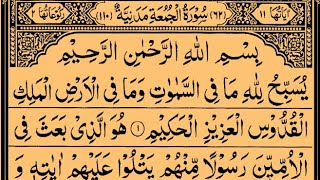 اٰيَاتُهَا ١١ (٦٢) سُوْرَةُ الْجُمُعَةِ مَدَنِيَّةٌ (١١٠) رُكُوْعَاتُهَا ٢
بِسْمِ اللّٰهِ الرَّحْمٰنِ الرَّحِيْمِ
يُسَبِّحُ لِلّٰهِ مَا فِى السَّمٰوٰتِ وَمَا فِى الْاَرْضِ الْمَلِكِ
الْقُدُّوْسِ الْعَزِيْزِ الْحَكِيْمِ ١ هُوَ الَّذِىْ بَعَثَ فِى
الْاُمِّيّٖنَ رَسُوْلًا مِّنْهُمْ يَتْلُوْا عَلَيْهِمْ اٰيٰتِهٖ وَ